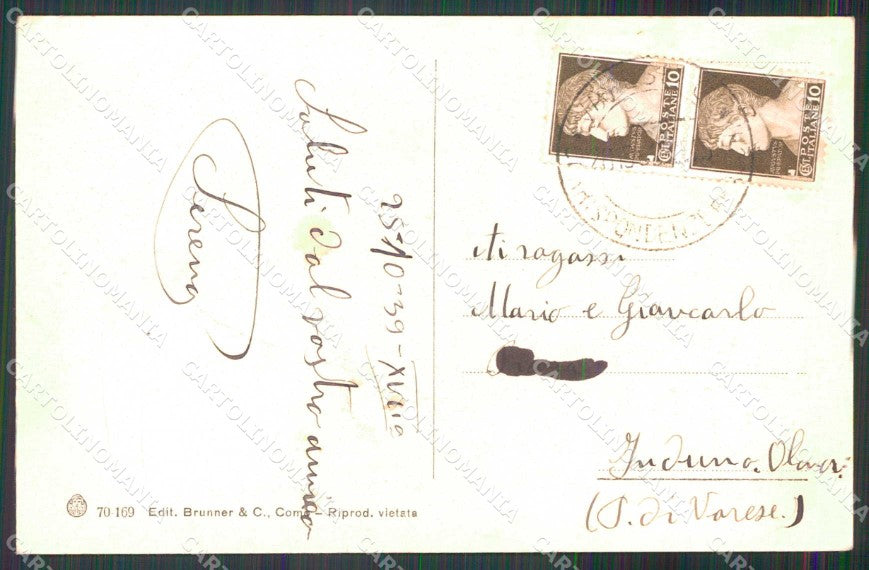 Saluti dal vostro amico
Serena
25-10-39-XVII°
10
POSTE
ITALIANE
10
POSTE
ITALIANE
Ai ragassi
Mario e Giancarlo
Induno. Olona.
(P. di Varese.)
70-169 Edit. Brunner & C., Como - Riprod. vietata
CARTOLINOMANIA